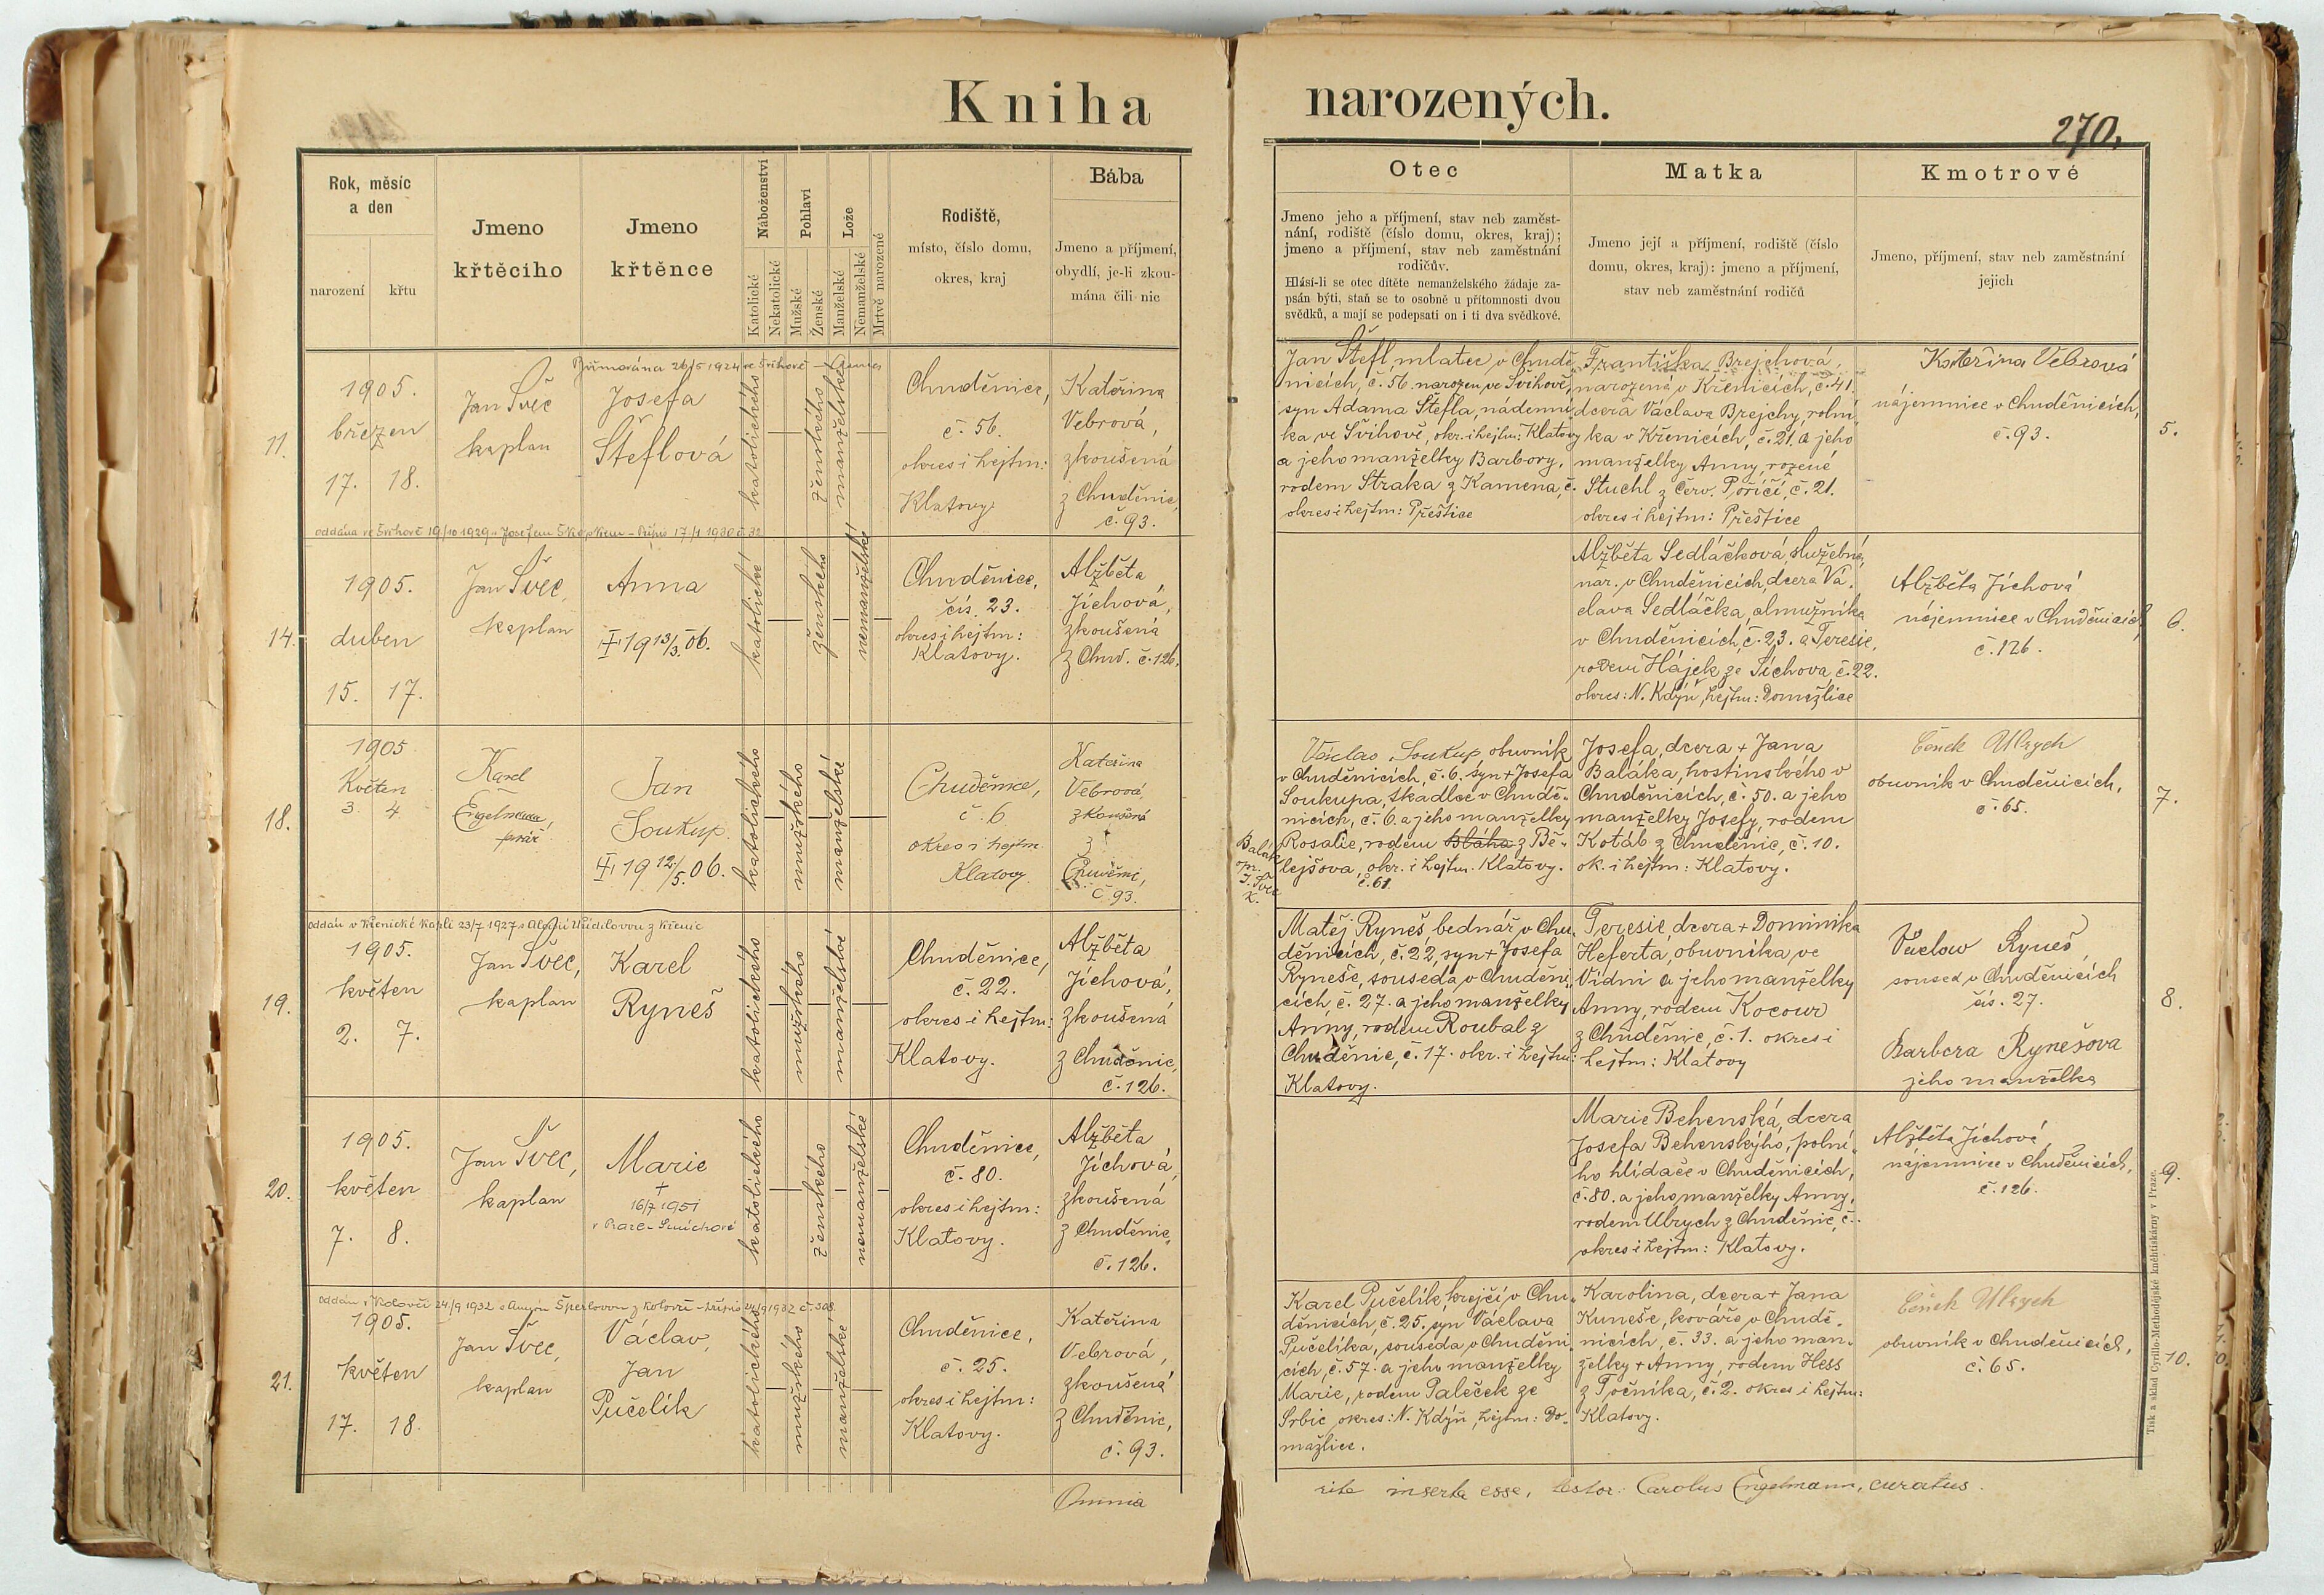 Kniha
narozených.
270.
Rok, měsíc
a den
narození
křtu
Jmeno
křtěcího
Jmeno
křtěnce
Náboženství
Katolické
Nekatolické
Pohlaví
Mužské
Ženské
Lože
Manželské
Nemanželské
Mrtvě narozené
Rodiště,
místo, číslo domu,
okres, kraj
Bába
Jmeno a příjmení,
obydlí, je-li zkou-
mána čili nic
Otec
Jmeno jeho a příjmení, stav neb zaměst-
nání, rodiště (číslo domu, okres, kraj);
jmeno a příjmení, stav neb zaměstnání
rodičův.
Hlásí-li se otec dítěte nemanželského žádaje za-
psán býti, staň se to osobně u přítomnosti dvou
svědků, a mají se podepsati on i ti dva svědkové.
Matka
Jmeno její a příjmení, rodiště (číslo
domu, okres, kraj): jmeno a příjmení,
stav neb zaměstnání rodičů
Kmotrové
Jmeno, příjmení, stav neb zaměstnání
jejich
11.
Biřmována 26/5 1924 ve Švihově
1905.
březen
17. 18.
Jan Švec
kaplan
Josefa
Šteflová
katolického
ženského
manželské
Chuděnice,
č. 56.
okres i hejtm:
Klatovy
Kateřina
Vebrová,
zkoušená
z Chuděnic,
č. 93.
Jan Štefl, mlatec v Chudě-
nicích, č. 56. narozen ve Švihově,
syn Adama Štefla, nádenní-
ka ve Švihově, okr. i hejtm: Klatovy
a jeho manželky Barbory,
rodem Straka z Kamena, č.
okres i hejtm: Přeštice
Františka Brejchová,
narozená v Křenicích, č. 41.
dcera Václava Brejchy, rolní-
ka v Křenicích, č. 21. a jeho
manželky Anny, rozené
Stuchl z Červ. Poříčí, č. 21.
okres i hejtm: Přeštice
Kateřina Vebrová
nájemnice v Chuděnicích,
č. 93.
5.
oddána ve Švihově 19/10 1929 s Josefem
14.
1905.
duben
15. 17.
Jan Švec,
kaplan
Anna
1913/3.06.
katolické
ženského
nemanželské
Chuděnice,
čís. 23.
okres i hejtm:
Klatovy.
Alžběta
Jíchová,
zkoušená
z Chud. č. 126.
Alžběta Sedláčková, služebná,
nar. v Chuděnicích, dcera Vá-
clava Sedláčka, almužníka
v Chuděnicích, č. 23. a Teresie,
rodem Hájek ze Síchova, č. 22.
okres: N. Kdýň, hejtm: Domažlice
Alžběta Jíchová
nájemnice v Chuděnicích,
č. 126.
6.
18.
1905
Květen
3 4
Karel
Engelmann,
farář
Jan
Soukup.
19 12/5. 06.
katolického
mužského
manželské
Chuděnice,
č 6
okres i hejtm.
Klatovy
Kateřina
Vebrová,
zkoušená
z
Chuděnic,
č 93.
Václav Soukup obuvník
v Chuděnicích, č. 6. syn + Josefa
Soukupa, tkadlce v Chudě-
nicích, č. 6. a jeho manželky
Rosalie, rodem Bláha z Bě-
lejšova, okr. i hejtm. Klatovy.
č. 61.
Balák
m.
J. Švec
k.
Josefa, dcera + Jana
Baláka, hostinského v
Chuděnicích, č. 50. a jeho
manželky Josefy, rodem
Kotáb z Chuděnic, č. 10.
ok. i hejtm: Klatovy.
Čeněk Ulrych
obuvník v Chuděnicích,
č. 65.
7.
oddán v Křenické kapli 23/7 1927 s z Křenic
19.
1905.
květen
2. 7.
Jan Švec,
kaplan
Karel
Ryneš
katolického
mužského
manželské
Chuděnice,
č. 22.
okres i hejtm:
Klatovy.
Alžběta
Jíchová,
zkoušená
z Chuděnic,
č. 126.
Matěj Ryneš bednář v Chu-
děnicích, č. 22, syn + Josefa
Ryneše, souseda v Chuděni-
cích, č. 27. a jeho manželky
Anny, rodem Roubal z
Chuděnic, č. 17. okr. i hejtm:
Klatovy.
Teresie, dcera + Dominika
Heferta, obuvníka, ve
Vídni a jeho manželky
Anny, rodem Kocour
z Chuděnic, č. 1. okres i
hejtm: Klatovy
Vaclav Ryneš,
soused v Chuděnicích
čís. 27.
Barbora Rynešova
jeho manželka
8.
20.
1905.
květen
7. 8.
Jan Švec,
kaplan
Marie
+
16/7 1951
v Praze-Smíchově
katolického
ženského
nemanželské
Chuděnice,
č. 80.
okres i hejtm:
Klatovy.
Alžběta
Jíchová,
zkoušená
z Chuděnic,
č. 126.
Marie Behenská, dcera
Josefa Behenskýho, polní-
ho hlídače v Chuděnicích,
č. 80. a jeho manželky Anny,
rodem Ulrych z Chuděnic, č.
okres i hejtm: Klatovy.
Alžběta Jíchová,
nájemnice v Chuděnicích,
č. 126.
9.
oddán v Koloveči 24/9 1932 s Annou Šperlovou z Kolovče
21.
1905.
květen
17. 18.
Jan Švec,
kaplan
Václav,
Jan
Pučelík
katolického
mužského
manželské
Chuděnice,
č. 25.
okres i hejtm:
Klatovy.
Kateřina
Vebrová,
zkoušená
z Chuděnic,
č. 93.
Karel Pučelík, krejčí v Chu-
děnicích, č. 25. syn Václava
Pučelíka, souseda v Chuděni-
cích, č. 57. a jeho manželky
Marie, rodem Paleček ze
Srbic, okres: N. Kdýň, hejtm: Do-
mažlice.
Karolina, dcera + Jana
Kuneše, kováře v Chudě-
nicích, č. 33. a jeho man-
želky + Anny, rodem Hess
z Točníka, č. 2. okres i hejtm:
Klatovy.
Čeněk Ulrych
obuvník v Chuděnicích,
č. 65.
10.
Omnia
rite inserta esse, testor: Carolus Engelmann, curatus.
Tisk a sklad Cyrillo-Methodějské knihtiskárny v Praze.